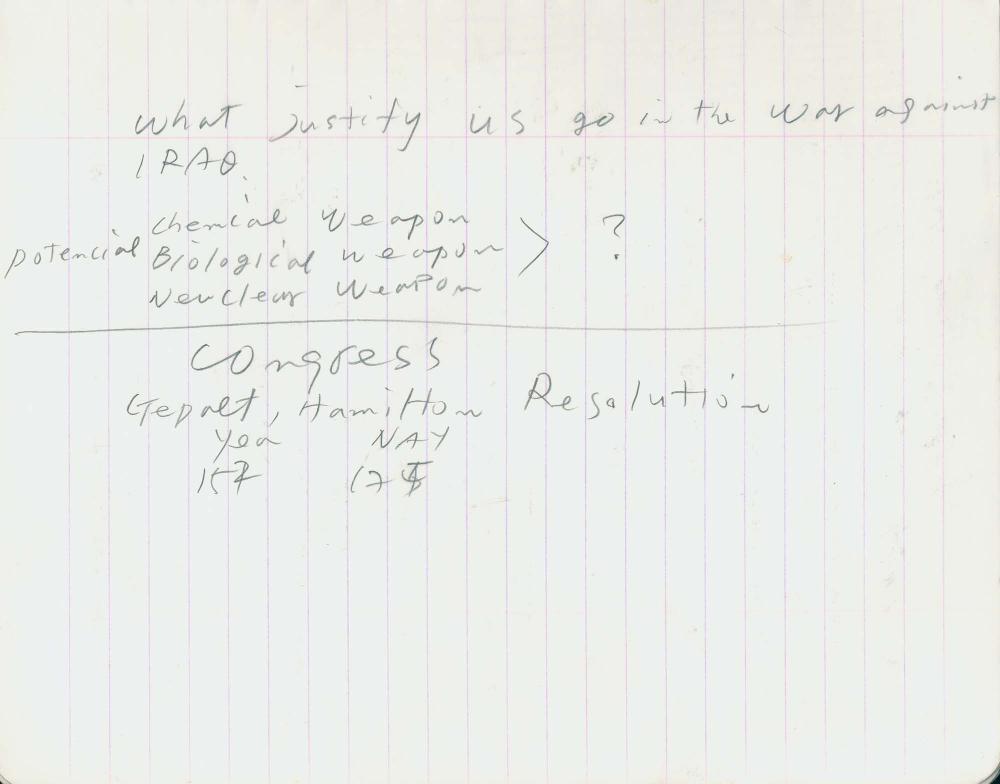 what justify us go in the war against
IRAQ.
chemical weapon
potencial Biological weapon > ?
Neuclear weapon
Congress
Gepalt, Hamilton Resolution
yea NAY
157 17